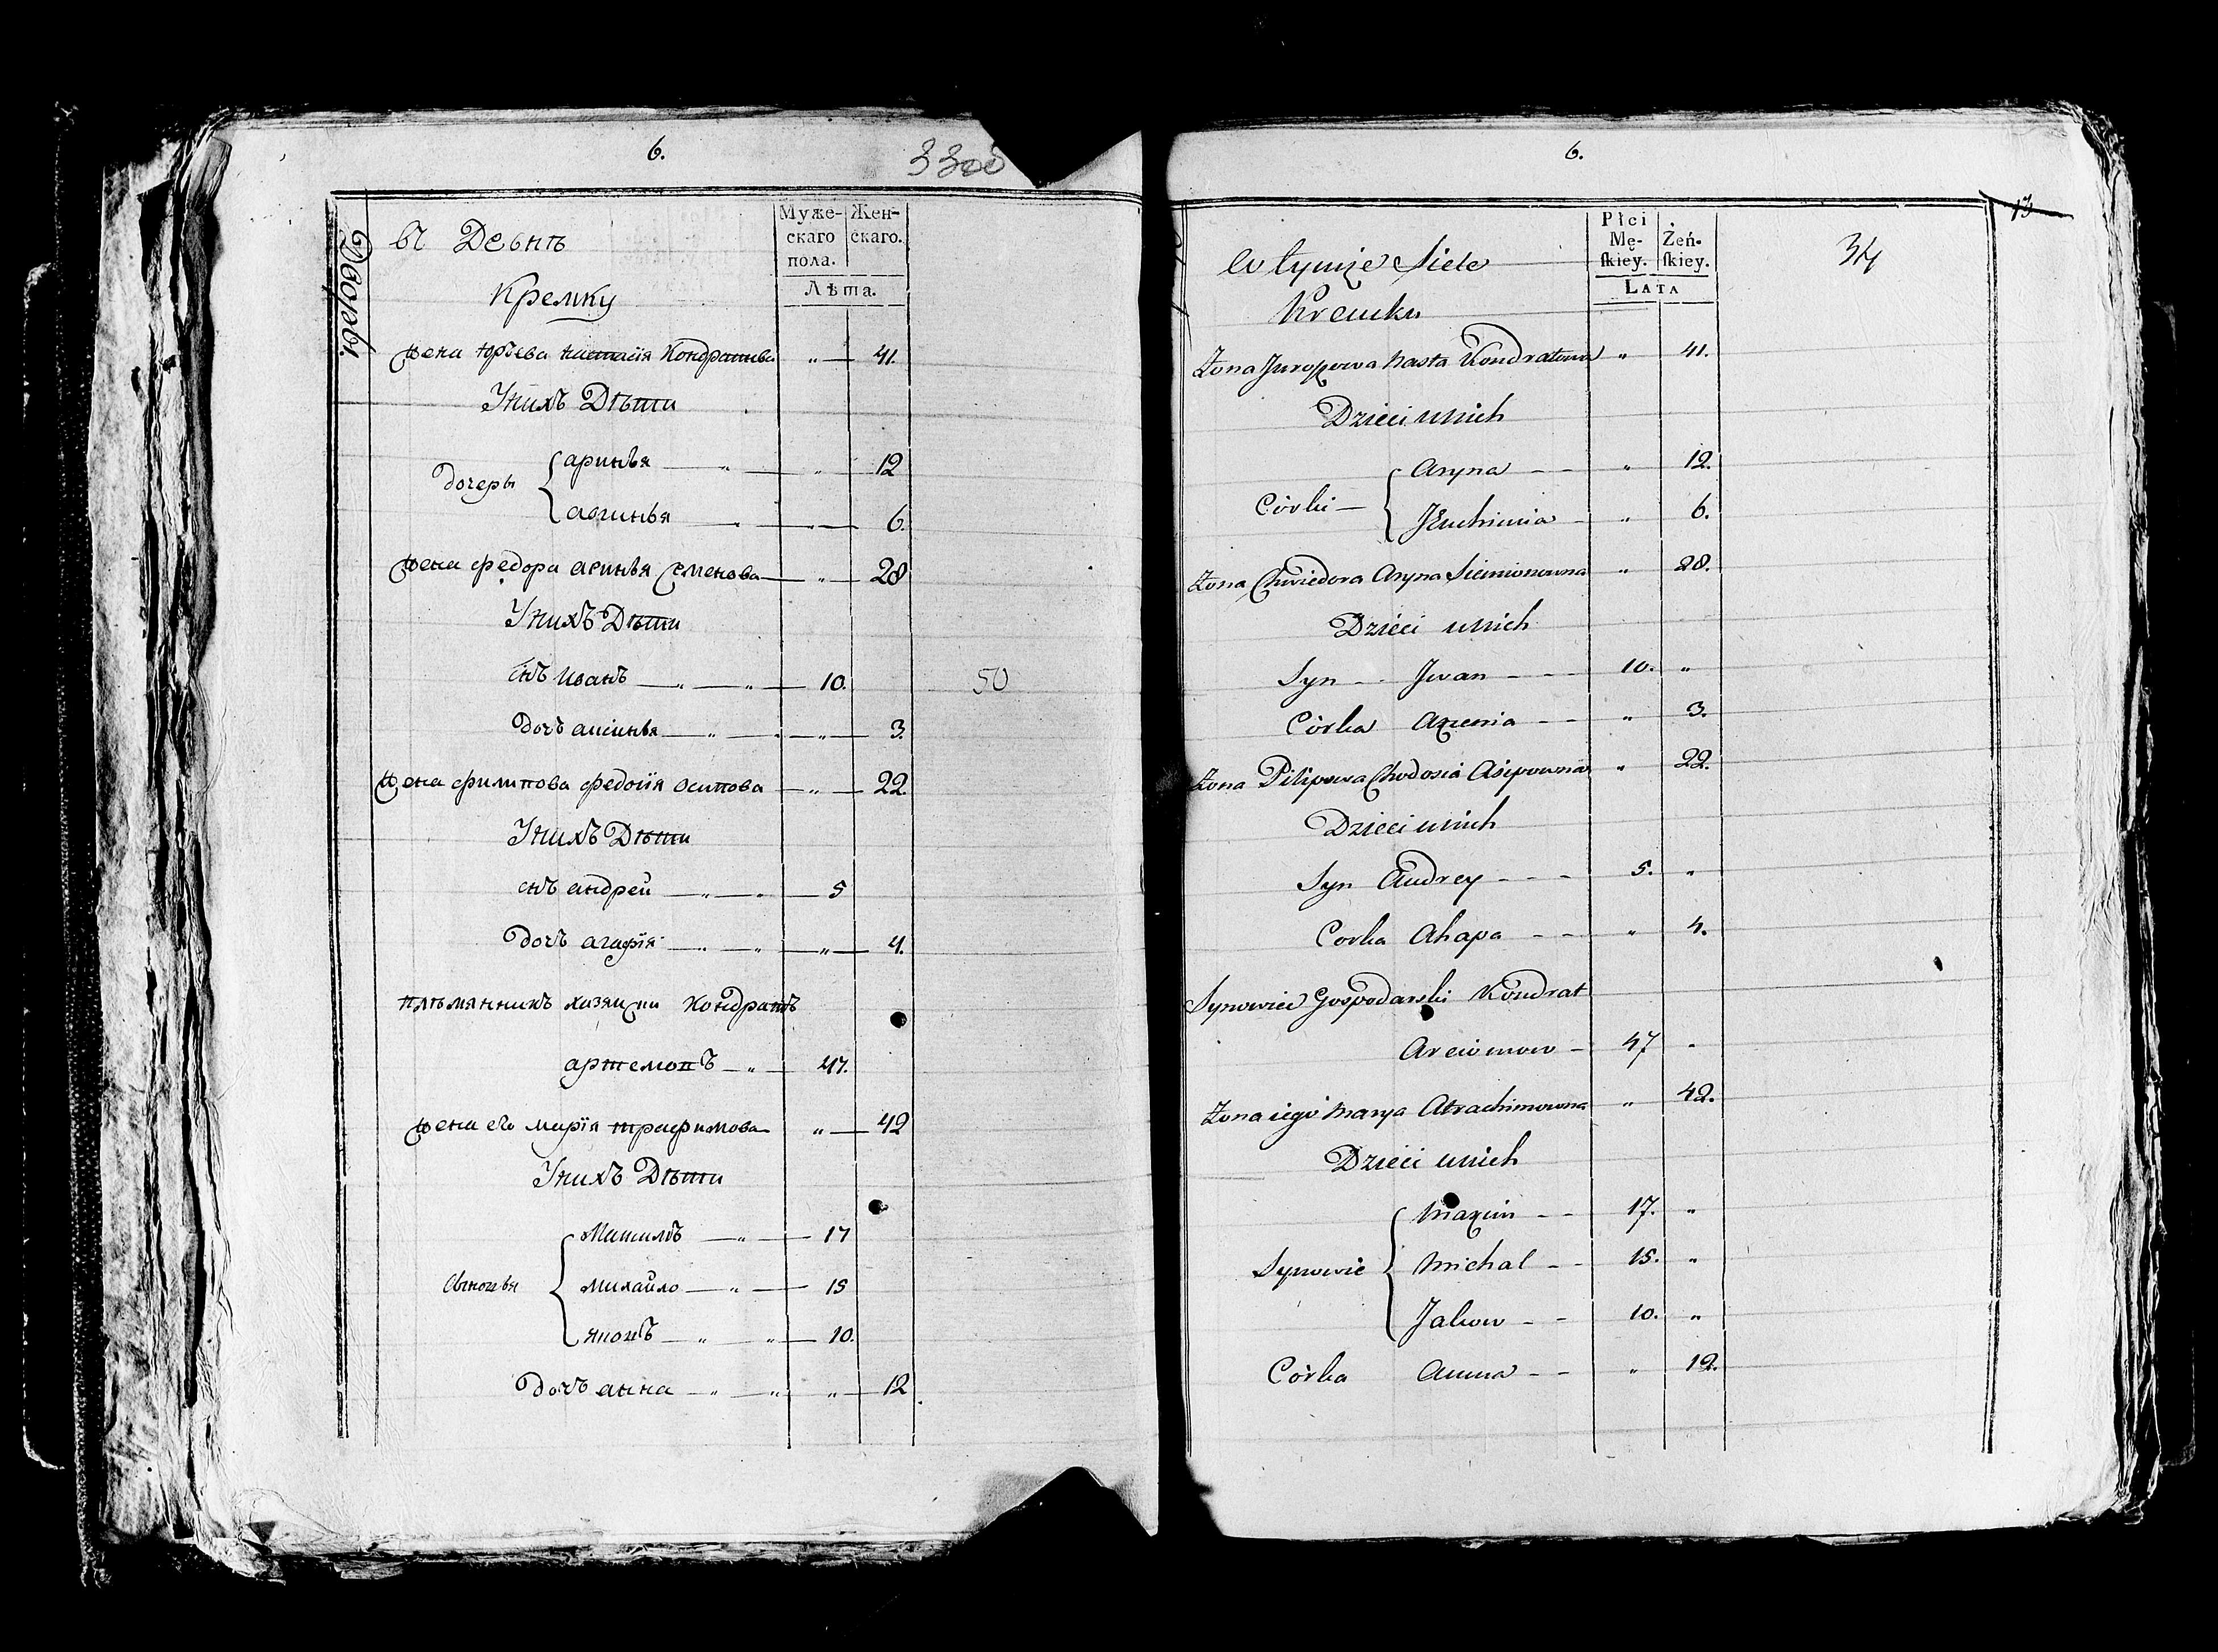 6.
Дворы.
въ Девнъ
Кремку
Муже-
скаго
пола.
Жен-
скаго.
Лѣта.
жена юрьева настасія Кондратьва „ 41.
У нихъ Дѣти
дочеры
аринья „ „ 12
авгинья „ „ 6.
жена федора аринья Семенова „ 28
У нихъ Дѣти
снъ иванъ „ „ 10.
50
дочъ аксинья „ „ „ 3.
жена филипова федосія осипова „ 22.
У нихъ Дѣти
снъ андрей „ „ 5
дочъ агафія „ „ „ 4.
племянникъ хизяцки Кондратъ
артемонъ „ 47.
жена его марія трафимова „ 42
У нихъ Дѣти
сыновья
Максимъ „ 17
михайло „ 15
яковъ „ „ 10.
дочъ анна „ „ „ 12.
6.
13
34
w tymże Siele
Kremku
Płci
Mę-
ſkiey.
Żeń-
ſkiey.
LATA
Żona Jurozowa Nasta Kondratowa „ 41.
Dzieci u nich
Córki
Aryna „ 12.
Jeuchimia „ 6.
Żona Chwiedora Aryna Siemionowna „ 28.
Dzieci u nich
Syn Jwan 10. „
Córka Axenia „ 3.
Żona Pilipowa Chodosia Asipowna „ 22.
Dzieci u nich
Syn Andrey 5. „
Corka Ahapa „ 4.
Synowiec Gospodarski Kondrat
Arciomow 47 „
Żona iego Marya Atrachimowna „ 42.
Dzieci u nich
Synowie
Maxim 17. „
Michal 15. „
Jakow 10. „
Córka Anna „ 12.